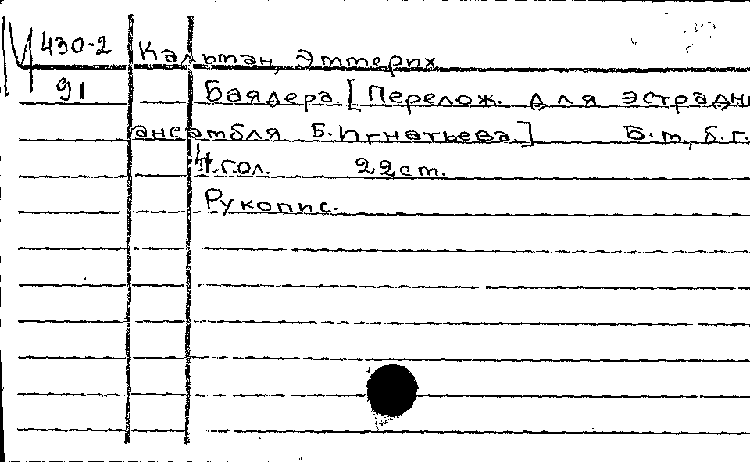 Ч 430-2 Кальман, Эммерих
91 Баядера [Перелож. для эстрадн
ансамбля Б. Игнатьева] Б.м, б.г.
4 гол. 22 ст.
Рукопис.